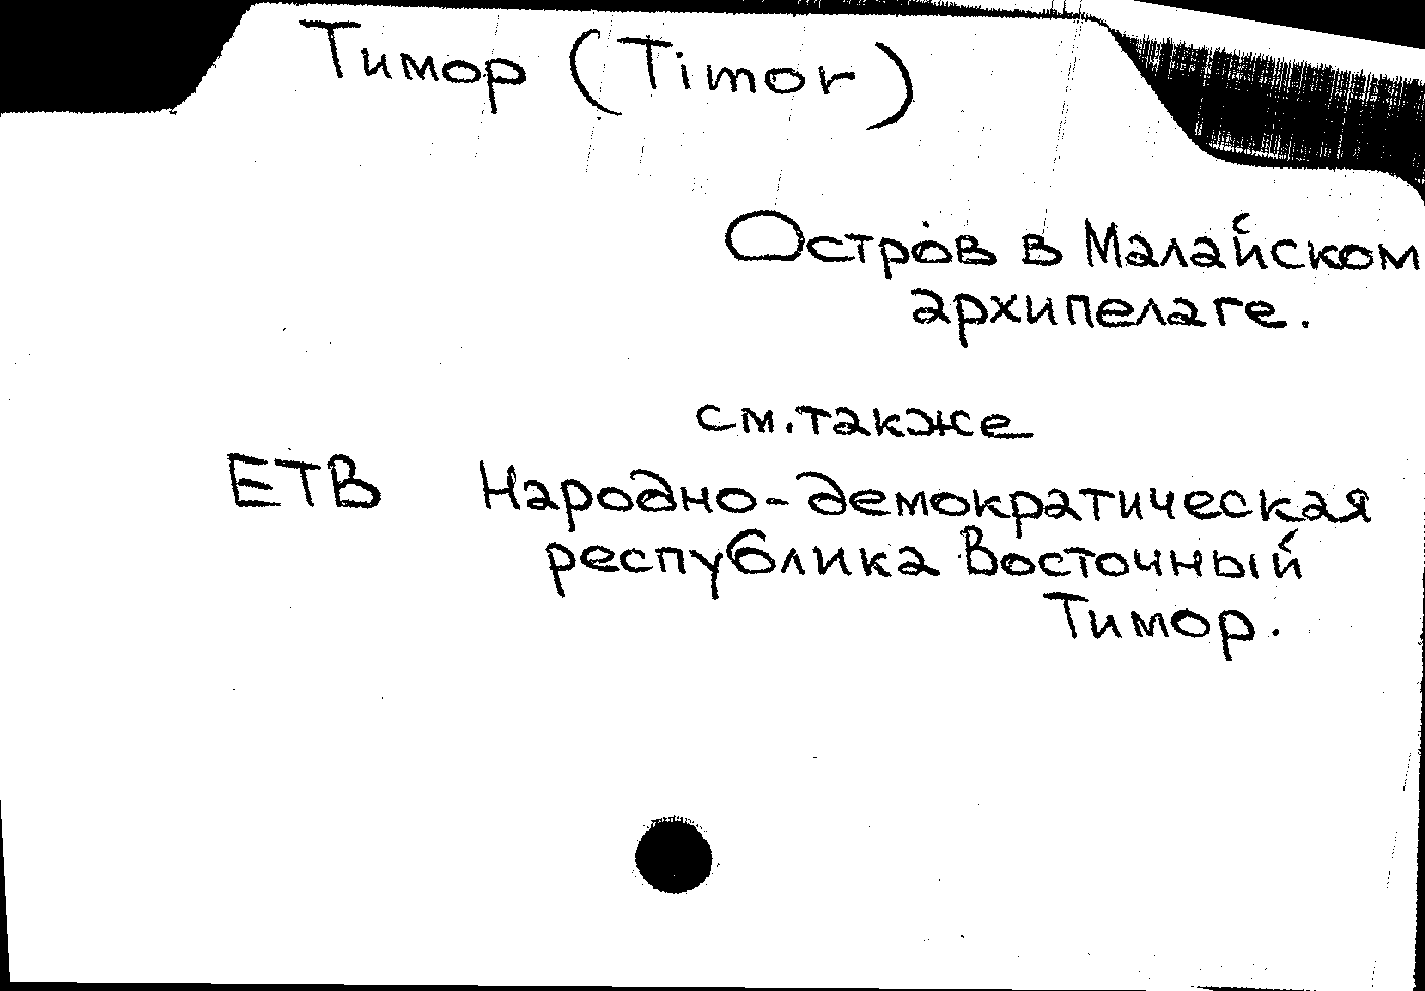 Тимор (Timor)
Остров в Малайском
архипелаге.
см. также
ЕТВ Народно-демократическая
республика Восточный
Тимор.